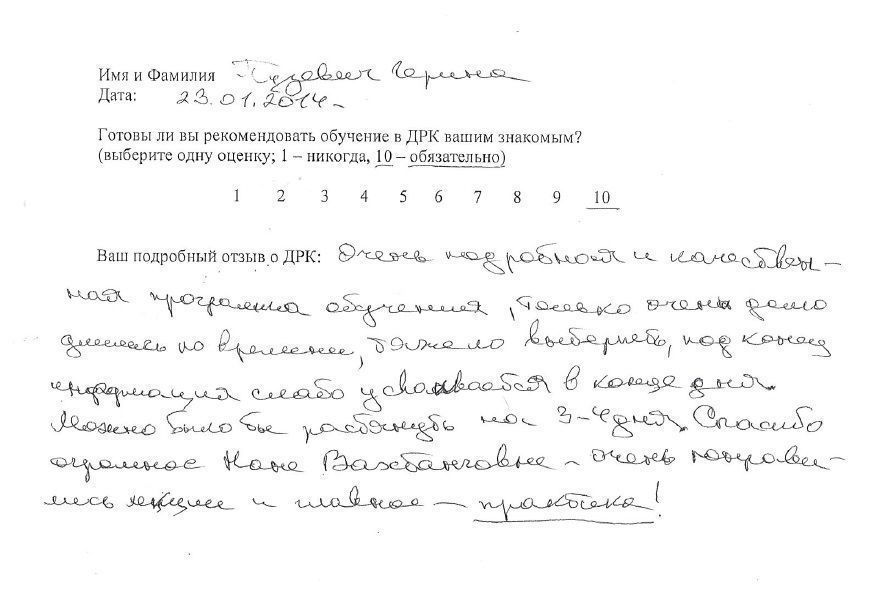 Имя и Фамилия Пузевич Чарина
Дата: 23.01.2014
Готовы ли вы рекомендовать обучение в ДРК вашим знакомым?
(выберите одну оценку; 1 – никогда, 10 – обязательно)
1 2 3 4 5 6 7 8 9 10
Ваш подробный отзыв о ДРК: Очень подробная и качествен-
ная программа обучения, только очень долго
длилась по времени, тяжело выдержать, под конец
информация слабо усваивается в конце дня.
Можно было бы растянуть на 3-4 дня. Спасибо
огромное Нане Вахтанговне – очень понрави-
лись лекции и главное – практика!